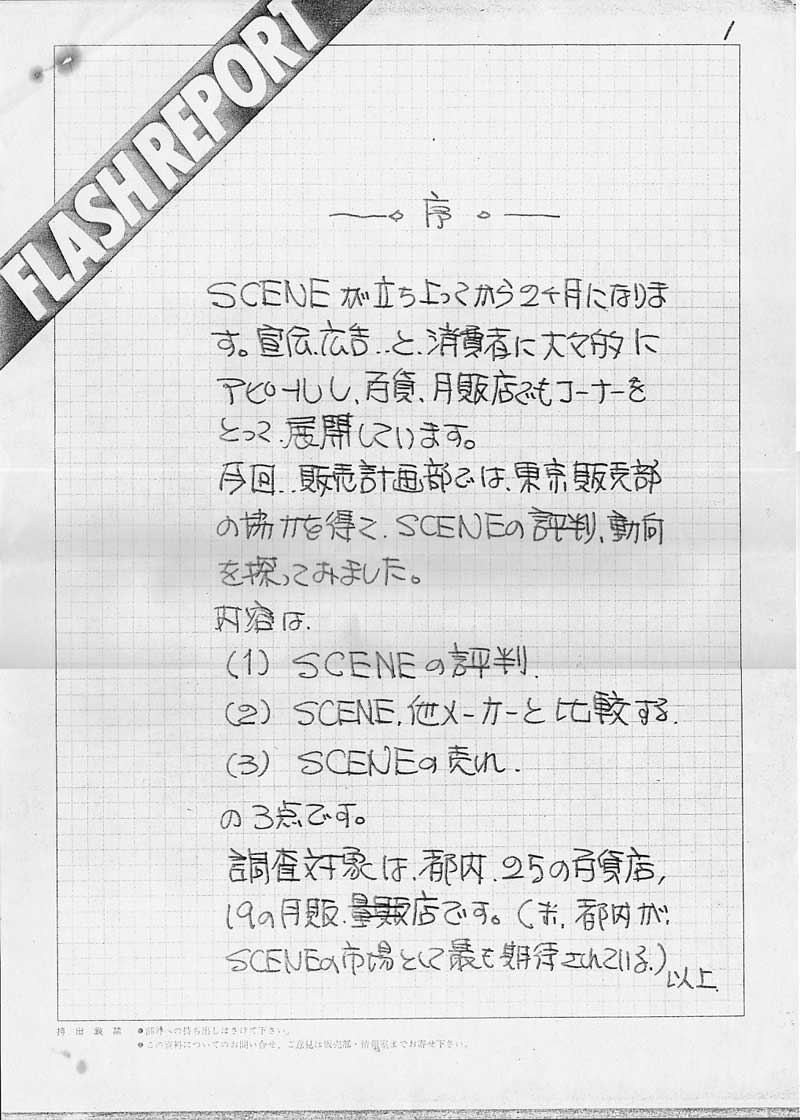 1
FLASH REPORT
序
SCENEが立ち上ってから2ヶ月になりま
す。宣伝、広告、と、消費者に大々的に
アピールし、百貨、月販店でもコーナーを
とって、展開しています。
今回、販売計画部では、東京販売部
の協力を得て、SCENEの評判、動向
を探ってみました。
内容は、
(1) SCENEの評判、
(2) SCENE、他メーカーと比較する、
(3) SCENEの売れ、
の3点です。
調査対象は、都内、25の百貨店、
19の月販、量販店です。(木、都内が、
SCENEの市場として最も期待されている。)
以上
持出厳禁 ●部外への持ち出しはさけて下さい。
●この資料についてのお問い合せ、ご意見は販売部・情報室までお寄せ下さい。